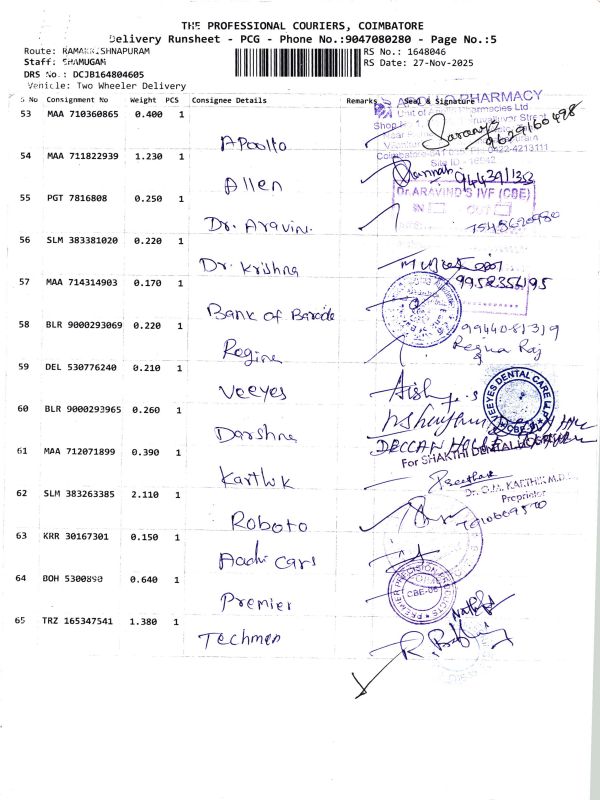 THE PROFESSIONAL COURIERS, COIMBATORE
Delivery Runsheet - PCG - Phone No.:9047080280 - Page No.:5
Route: RAMAKRISHNAPURAM
RS No.: 1648046
Staff: SHAMUGAM
RS Date: 27-Nov-2025
DRS No.: DCJB164804605
Vehicle: Two Wheeler Delivery
S No Consignment No Weight PCS Consignee Details Remarks Seal & Signature
53 MAA 710360865 0.400 1
PHARMACY
Apoolto
Saranya
9629160498
0422-4213111
Site ID - 16042
54 MAA 711822939 1.230 1
Allen
55 PGT 7816808 0.250 1
Dr ARAVIND'S IVF (CBE)
IN OUT
Dr. Aravin.
7545620980
56 SLM 383381020 0.220 1
Dr. Krishna
57 MAA 714314903 0.170 1
9958356195
Bank of Barode
58 BLR 9000293069 0.220 1
9944081319
Regina Raj
Regine
59 DEL 530776240 0.210 1
Veeyes
VEEYES DENTAL CARE LLP
CBE-
60 BLR 9000293965 0.260 1
Darshna
DECCAN
61 MAA 712071899 0.390 1
For SHAKTHI DENTAL
Karthik
Preethav
Dr. O.M. KARTHIK M.D.
Proprietor
62 SLM 383263385 2.110 1
Roboto
63 KRR 30167301 0.150 1
Aadhi Cars
64 BOH 5300890 0.640 1
PREMIER PRECISION PRODUCTS
CBE-06
Premier
65 TRZ 165347541 1.380 1
Techmen